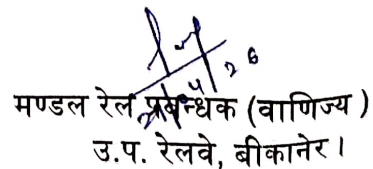 मण्डल रेल प्रबन्धक (वाणिज्य)
उ.प. रेलवे, बीकानेर।